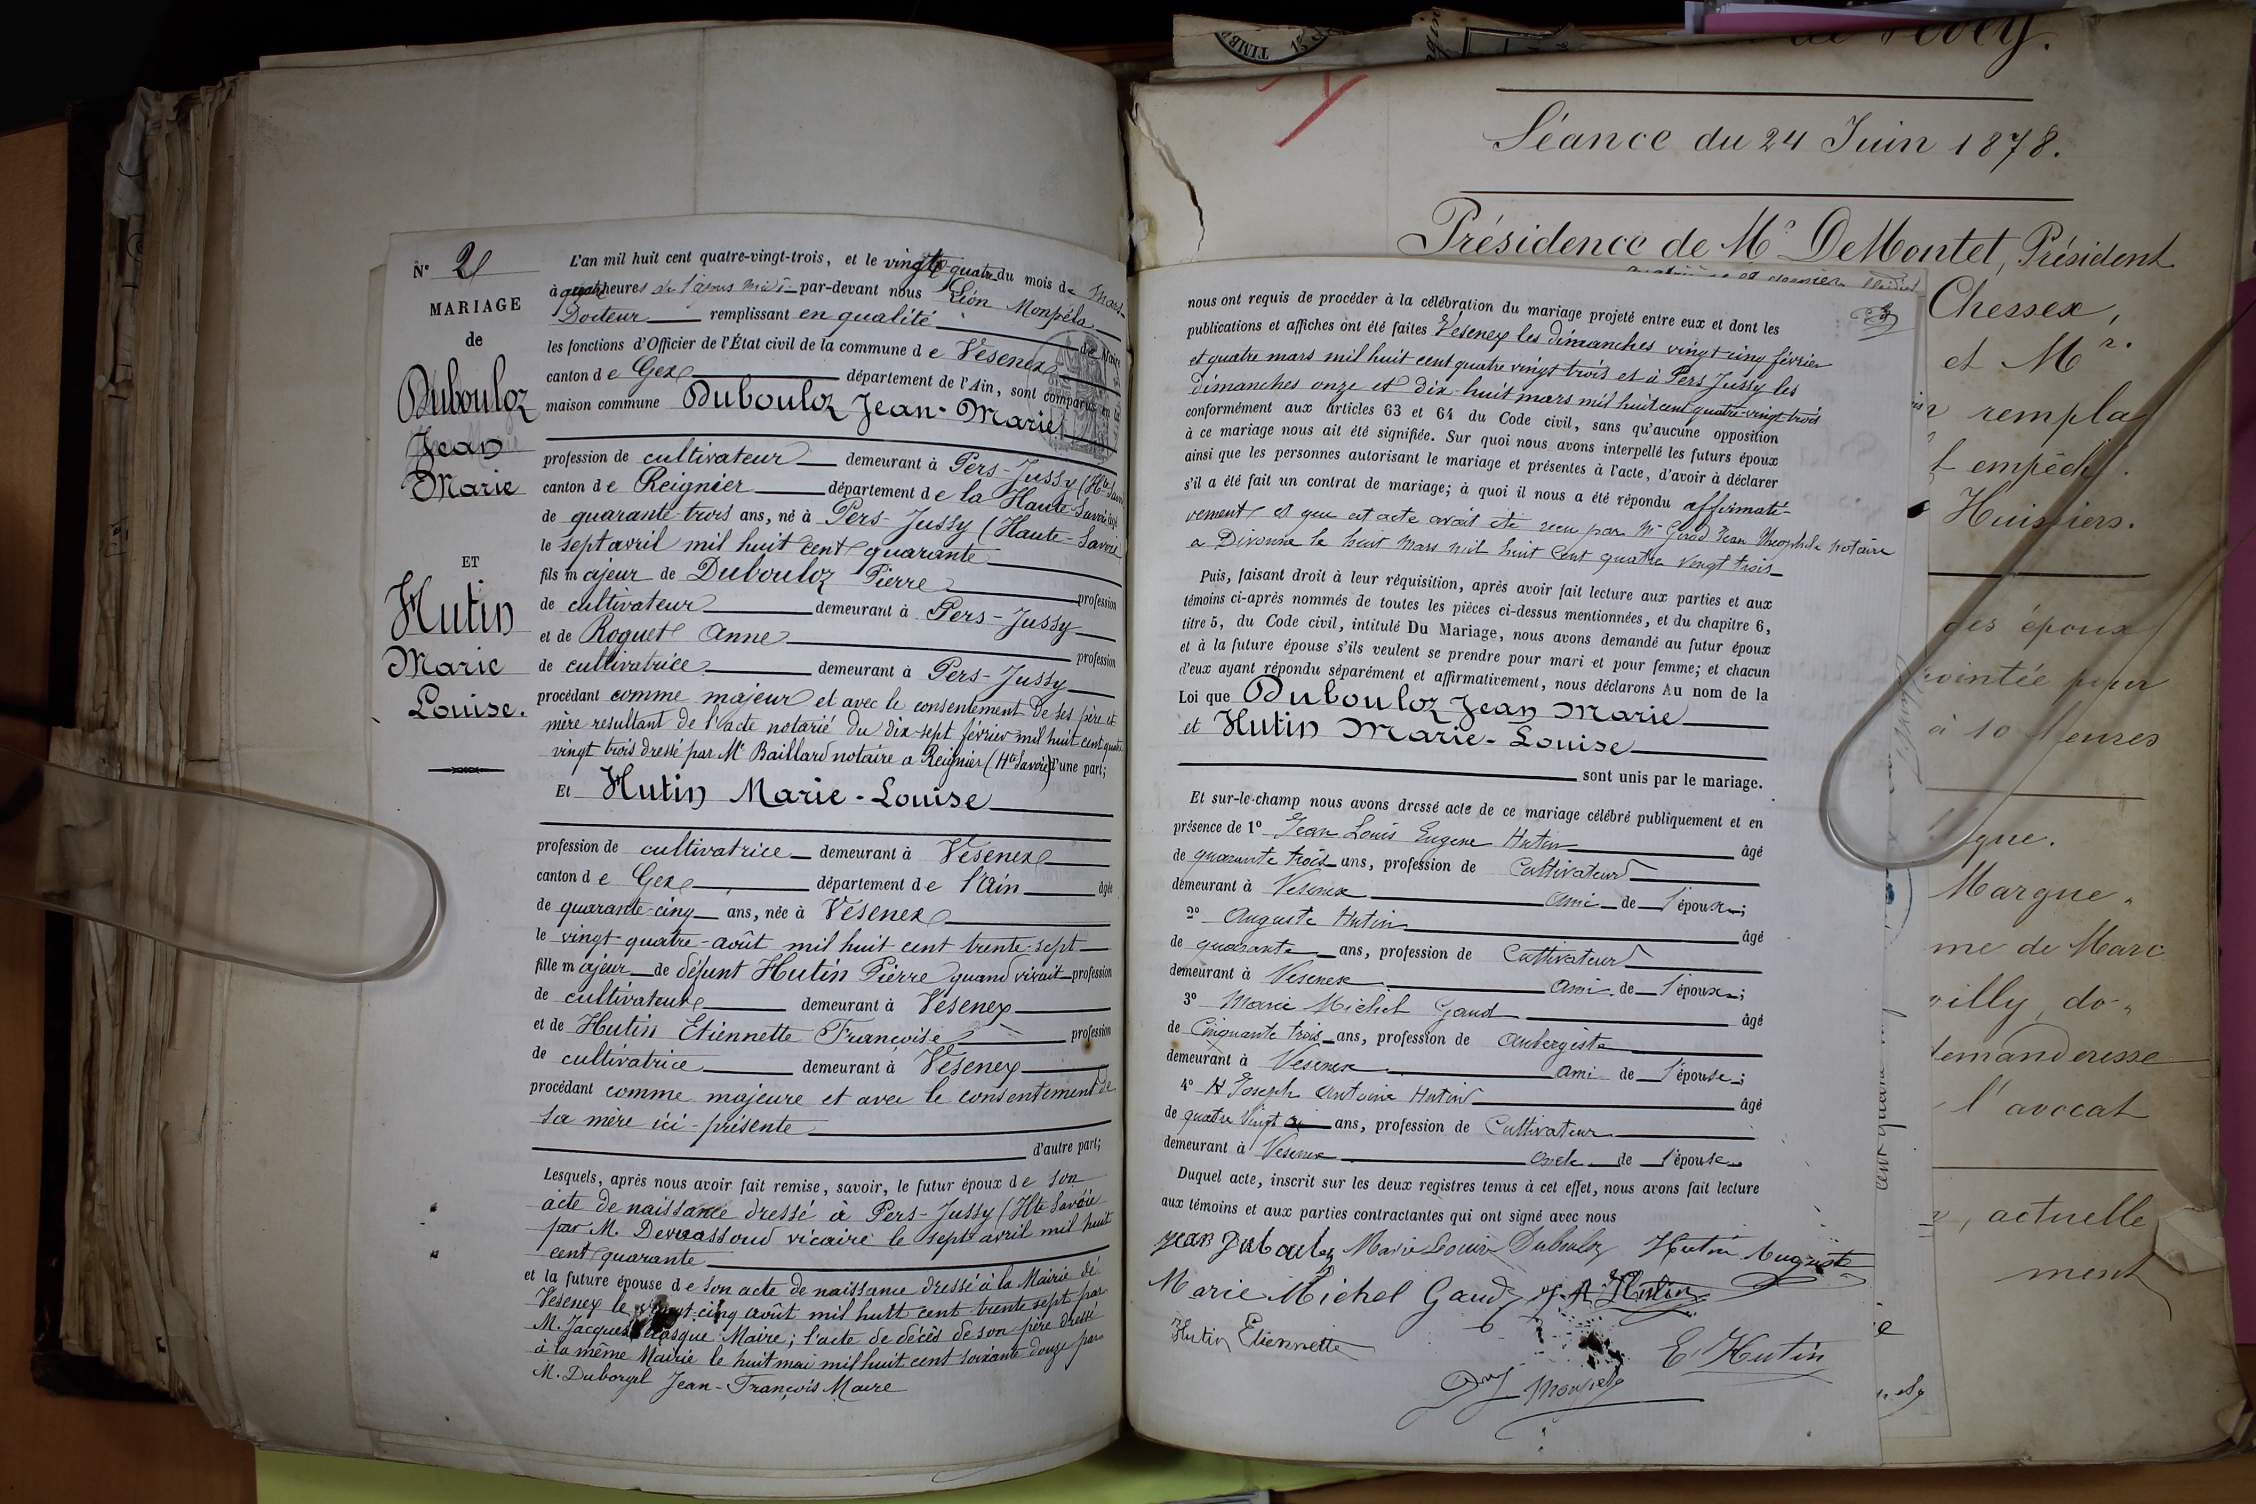 N° 2
MARIAGE
de
Dubouloz
Jean
Marie
ET
Hutin
Marie
Louise.
L'an mil huit cent quatre-vingt-trois, et le vingt quatre du mois de Mars
à quatre heures de l'après midi par-devant nous Léon Monpéla
Docteur remplissant en qualité de Maire
les fonctions d'Officier de l'État civil de la commune de Vésenex
canton de Gex département de l'Ain, sont comparus en la
maison commune Dubouloz Jean-Marie
profession de cultivateur demeurant à Pers-Jussy (Hte Savoie
canton de Reignier département de la Haute-Savoie âgé
de quarante-trois ans, né à Pers-Jussy (Haute-Savoie
le sept avril mil huit cent quarante
fils majeur de Dubouloz Pierre profession
de cultivateur demeurant à Pers-Jussy
et de Roguet Anne profession
de cultivatrice demeurant à Pers-Jussy
procédant comme majeur et avec le consentement de ses père et
mère resultant de l'acte notarié du dix-sept février mil huit cent quatre
vingt trois dressé par Me Baillard notaire a Reignier (Hte Savoie) d'une part;
Et Hutin Marie-Louise
profession de cultivatrice demeurant à Vésenex
canton de Gex département de l'Ain âgée
de quarante-cinq ans, née à Vésenex
le vingt-quatre-août mil huit cent trente-sept
fille majeur de défunt Hutin Pierre quand vivait profession
de cultivateur demeurant à Vésenex
et de Hutin Etiennette Françoise profession
de cultivatrice demeurant à Vésenex
procédant comme majeure et avec le consentement de
sa mère ici-présente
d'autre part;
Lesquels, après nous avoir fait remise, savoir, le futur époux de son
acte de naissance dressé à Pers-Jussy (Hte Savoie
par M. vicaire le sept avril mil huit
cent quarante
et la future épouse de son acte de naissance dressé à la Mairie de
Vésenex le vingt-cinq août mil huit cent trente sept par
M. Jacques Maire; l'acte de décès de son père dressé
à la même Mairie le huit mai mil huit cent soixante douze par
M. Duborgel Jean-François Maire
Séance du 24 Juin 1878.
Présidence de Mr DeMontet, Président
Chessex,
et Mr.
rempla
empêché.
Huissiers.
des époux
pour
à 10 heures
Margue
me de Marc
do-
demanderesse
l'avocat
actuelle
ment
nous ont requis de procéder à la célébration du mariage projeté entre eux et dont les
publications et affiches ont été faites Vésenex les dimanches vingt cinq février
et quatre mars mil huit cent quatre vingt trois et à Pers Jussy les
dimanches onze et dix-huit mars mil huit cent quatre-vingt trois
conformément aux articles 63 et 64 du Code civil, sans qu'aucune opposition
à ce mariage nous ait été signifiée. Sur quoi nous avons interpellé les futurs époux
ainsi que les personnes autorisant le mariage et présentes à l'acte, d'avoir à déclarer
s'il a été fait un contrat de mariage; à quoi il nous a été répondu affirmati-
vement et que cet acte avait été reçu par Me Jean Théophile notaire
a Divonne le huit mars mil huit cent quatre vingt trois
Puis, faisant droit à leur réquisition, après avoir fait lecture aux parties et aux
témoins ci-après nommés de toutes les pièces ci-dessus mentionnées, et du chapitre 6,
titre 5, du Code civil, intitulé Du Mariage, nous avons demandé au futur époux
et à la future épouse s'ils veulent se prendre pour mari et pour femme; et chacun
d'eux ayant répondu séparément et affirmativement, nous déclarons Au nom de la
Loi que Dubouloz Jean Marie
et Hutin Marie-Louise
sont unis par le mariage.
Et sur-le-champ nous avons dressé acte de ce mariage célébré publiquement et en
présence de 1° Jean Louis Eugene Hutin âgé
de quarante trois ans, profession de Cultivateur
demeurant à Vesenex ami de l'époux;
2° Auguste Hutin âgé
de quarante ans, profession de Cultivateur
demeurant à Vesenex ami de l'époux;
3° Marie Michel Gaud âgé
de Cinquante trois ans, profession de aubergiste
demeurant à Vesenex ami de l'épouse;
4° Joseph Antoine Hutin âgé
de quatre vingt ans, profession de Cultivateur
demeurant à Vesenex oncle de l'épouse
Duquel acte, inscrit sur les deux registres tenus à cet effet, nous avons fait lecture
aux témoins et aux parties contractantes qui ont signé avec nous
jean Dubouloz Marie Louise Dubouloz Hutin Auguste
Marie Michel Gaud J. A. Hutin
Hutin Etiennette
E Hutin
Dr Monpela